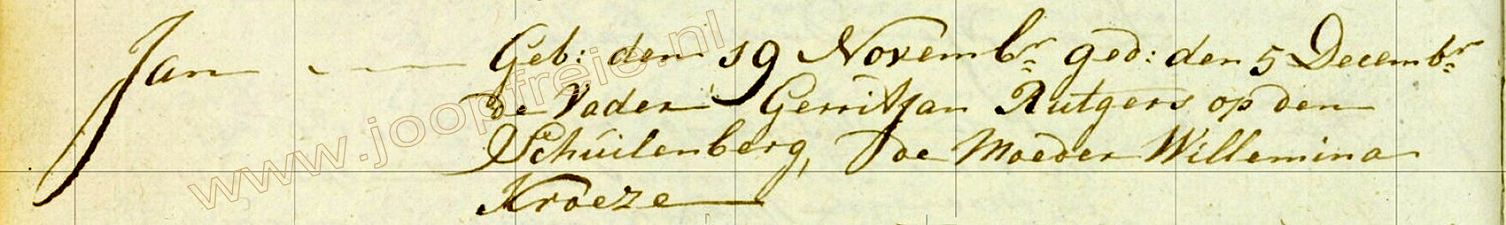 Jan Geb: den 19 Novembr ged: den 5 Decembr
de Vader Gerritjan Rutgers op den
Schuilenberg, de Moeder Willemina
Kroeze
www.joopfreie.nl